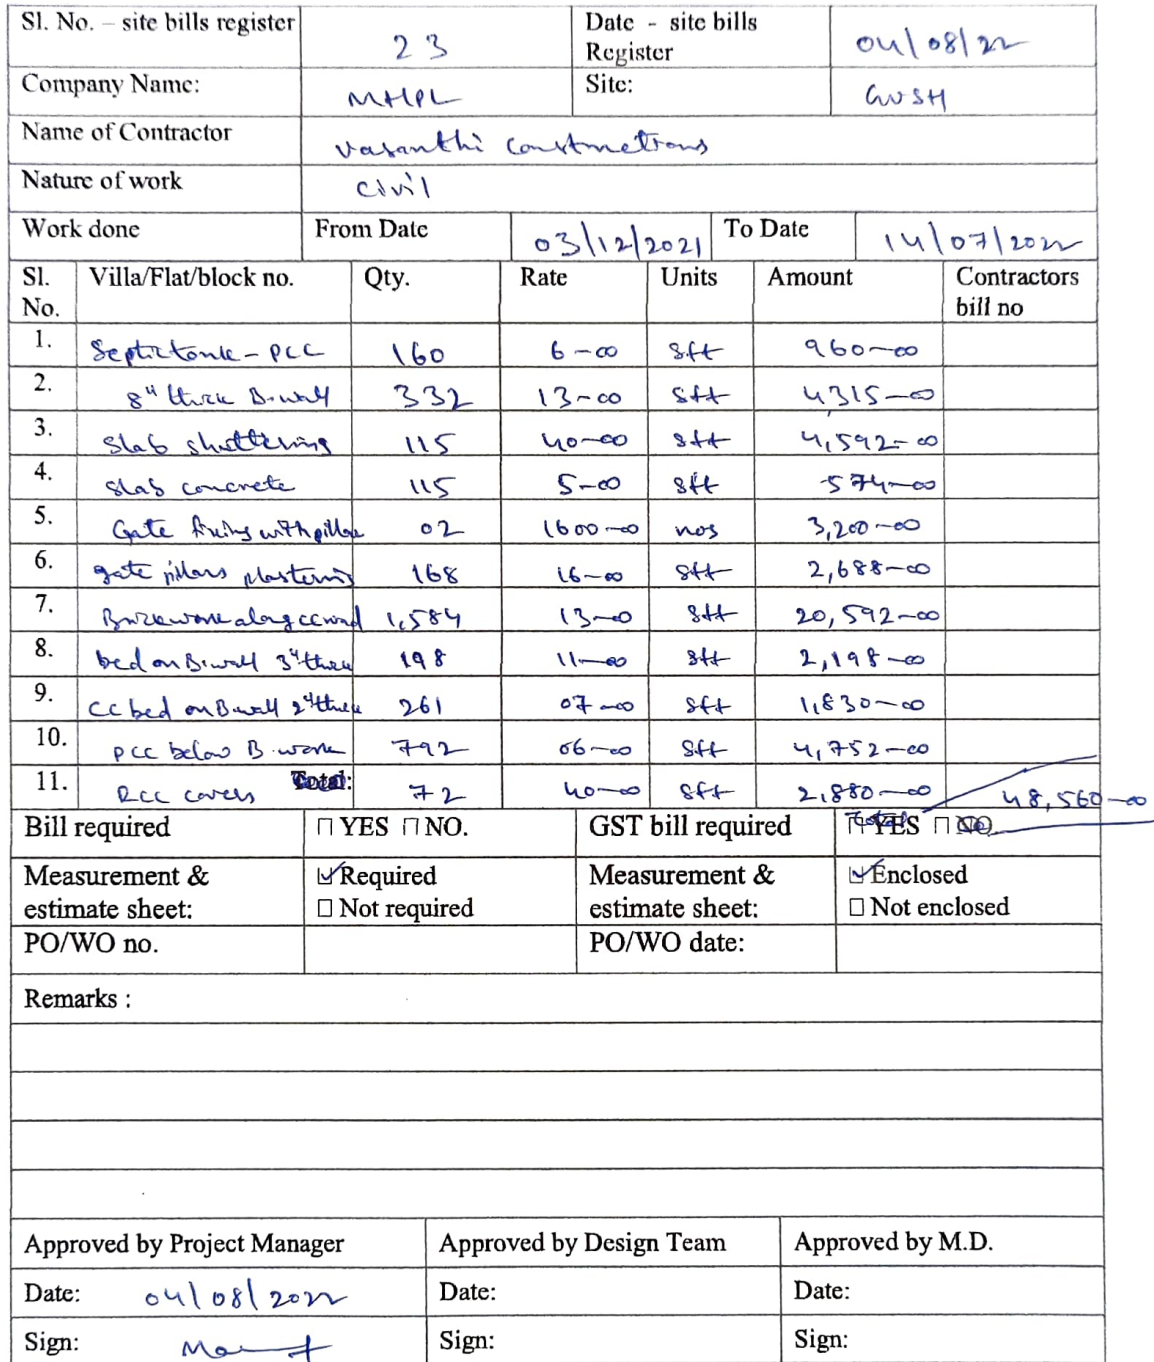 Sl. No. – site bills register 23 Date - site bills Register 04/08/22
Company Name: MHPL Site: GVSH
Name of Contractor Vasanthi Constructions
Nature of work Civil
Work done From Date 03/12/2021 To Date 14/07/2022
Sl. No. Villa/Flat/block no. Qty. Rate Units Amount Contractors bill no
1. Septic tank - PCC 160 6-00 sft 960-00
2. 8" thick B.wall 332 13-00 sft 4315-00
3. Slab shuttering 115 40-00 sft 4,592-00
4. Slab concrete 115 5-00 sft 574-00
5. Gate fixing with pillar 02 1600-00 nos 3,200-00
6. gate pillars plastering 168 16-00 sft 2,688-00
7. Brickwork along 1,584 13-00 sft 20,592-00
8. bed on B.wall 3" thick 198 11-00 sft 2,198-00
9. CC bed on B wall 2" thick 261 07-00 sft 1,830-00
10. PCC below B.work 792 06-00 sft 4,752-00
11. RCC covers Total: 72 40-00 sft 2,880-00 48,560-00
Bill required □ YES □ NO. GST bill required □ YES □ NO
Measurement & estimate sheet: ☑ Required Measurement & estimate sheet: ☑ Enclosed
□ Not required □ Not enclosed
PO/WO no. PO/WO date:
Remarks :
Approved by Project Manager Approved by Design Team Approved by M.D.
Date: 04/08/2022 Date: Date:
Sign: Sign: Sign: